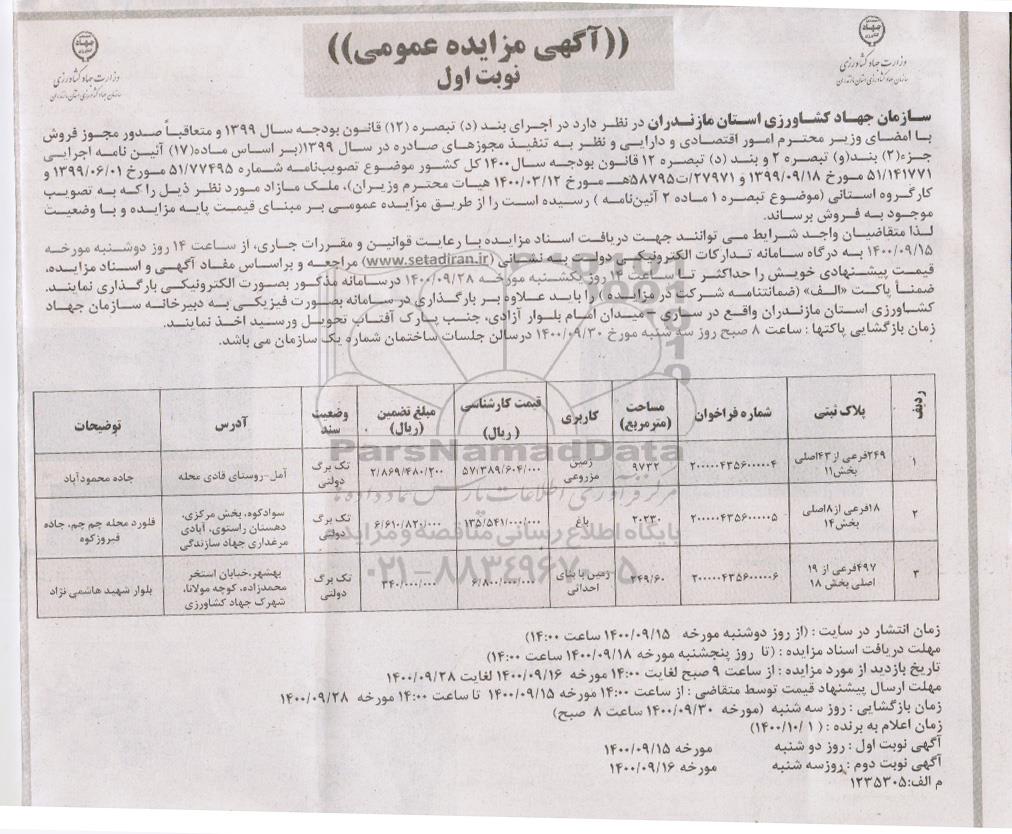 ((آگهی مزایده عمومی))
نوبت اول
وزارت جهاد کشاورزی
سازمان جهاد کشاورزی استان مازندران
وزارت جهاد کشاورزی
سازمان جهاد کشاورزی استان مازندران
سازمان جهاد کشاورزی استان مازندران در نظر دارد در اجرای بند (د) تبصره (۱۲) قانون بودجه سال ۱۳۹۹ و متعاقباً صدور مجوز فروش
با امضای وزیر محترم امور اقتصادی و دارایی و نظر به تنفیذ مجوزهای صادره در سال ۱۳۹۹(بر اساس ماده(۱۷) آئین نامه اجرایی
جزء(۲) بند(و) تبصره ۲ و بند (د) تبصره ۱۲ قانون بودجه سال ۱۴۰۰ کل کشور موضوع تصویب‌نامه شماره ۵۱/۷۷۴۹۵ مورخ ۱۳۹۹/۰۶/۰۱ و
۵۱/۱۴۱۷۷۱ مورخ ۱۳۹۹/۰۹/۱۸ و ۲۷۹۷۱/ت۵۸۷۹۵هـ مورخ ۱۴۰۰/۰۳/۱۲ هیات محترم وزیران)، ملک مازاد مورد نظر ذیل را که به تصویب
کارگروه استانی (موضوع تبصره ۱ ماده ۲ آئین‌نامه ) رسیده است را از طریق مزایده عمومی بر مبنای قیمت پایه مزایده و با وضعیت
موجود به فروش برساند.
لذا متقاضیان واجد شرایط می توانند جهت دریافت اسناد مزایده با رعایت قوانین و مقررات جاری، از ساعت ۱۴ روز دوشنبه مورخه
۱۴۰۰/۰۹/۱۵ به درگاه سامانه تدارکات الکترونیکی دولت به نشانی (www.setadiran.ir) مراجعه و براساس مفاد آگهی و اسناد مزایده،
قیمت پیشنهادی خویش را حداکثر تا ساعت ۱۴ روز یکشنبه مورخه ۱۴۰۰/۰۹/۲۸ درسامانه مذکور بصورت الکترونیکی بارگذاری نمایند.
ضمناً پاکت «الف» (ضمانتنامه شرکت در مزایده ) را باید علاوه بر بارگذاری در سامانه بصورت فیزیکی به دبیرخانه سازمان جهاد
کشاورزی استان مازندران واقع در ساری - میدان امام بلوار آزادی، جنب پارک آفتاب تحویل ورسید اخذ نمایند.
زمان بازگشایی پاکتها : ساعت ۸ صبح روز سه شنبه مورخ ۱۴۰۰/۰۹/۳۰ درسالن جلسات ساختمان شماره یک سازمان می باشد.
ردیف پلاک ثبتی شماره فراخوان مساحت (مترمربع) کاربری قیمت کارشناسی (ریال) مبلغ تضمین (ریال) وضعیت سند آدرس توضیحات
۱ ۲۴۹فرعی از ۴۳اصلی بخش۱۱ ۲۰۰۰۰۰۴۳۵۶۰۰۰۰۰۴ ۹۷۳۲ زمین مزروعی ۵۷/۳۸۹/۶۰۴/۰۰۰ ۲/۸۶۹/۴۸۰/۲۰۰ تک برگ دولتی آمل-روستای قادی محله جاده محمودآباد
۲ ۱۸فرعی از۸اصلی بخش۱۴ ۲۰۰۰۰۰۴۳۵۶۰۰۰۰۰۵ ۲۰۲۳۰ باغ ۱۳۵/۵۴۱/۰۰۰/۰۰۰ ۶/۶۱۰/۸۲۰/۰۰۰ تک برگ دولتی سوادکوه، بخش مرکزی، دهستان راستوی، آبادی مرغداری جهاد سازندگی فلورد محله چم چم، جاده فیروزکوه
۳ ۴۹۷فرعی از ۱۹ اصلی بخش ۱۸ ۲۰۰۰۰۰۴۳۵۶۰۰۰۰۰۶ ۲۴۹/۶۰ زمین با بنای احداثی ۶/۸۰۰/۰۰۰/۰۰۰ ۳۴۰/۰۰۰/۰۰۰ تک برگ دولتی بهشهر،خیابان استخر محمدزاده، کوچه مولانا، شهرک جهاد کشاورزی بلوار شهید هاشمی نژاد
زمان انتشار در سایت : (از روز دوشنبه مورخه ۱۴۰۰/۰۹/۱۵ ساعت ۱۴:۰۰)
مهلت دریافت اسناد مزایده : (تا روز پنجشنبه مورخه ۱۴۰۰/۰۹/۱۸ ساعت ۱۴:۰۰)
تاریخ بازدید از مورد مزایده : از ساعت ۹ صبح لغایت ۱۴:۰۰ مورخه ۱۴۰۰/۰۹/۱۶ لغایت ۱۴۰۰/۰۹/۲۸
مهلت ارسال پیشنهاد قیمت توسط متقاضی : از ساعت ۱۴:۰۰ مورخه ۱۴۰۰/۰۹/۱۵ تا ساعت ۱۴:۰۰ مورخه ۱۴۰۰/۰۹/۲۸
زمان بازگشایی : روز سه شنبه (مورخه ۱۴۰۰/۰۹/۳۰ ساعت ۸ صبح)
زمان اعلام به برنده : ( ۱۴۰۰/۱۰/۱)
آگهی نوبت اول : روز دو شنبه مورخه ۱۴۰۰/۰۹/۱۵
آگهی نوبت دوم : روزسه شنبه مورخه ۱۴۰۰/۰۹/۱۶
م الف:۱۲۳۵۳۰۵
ParsNamadData
مرکز فرآوری اطلاعات پارس نماد داده ها
پایگاه اطلاع رسانی مناقصه و مزایده
۰۲۱-۸۸۳۴۹۶۷۰-۵